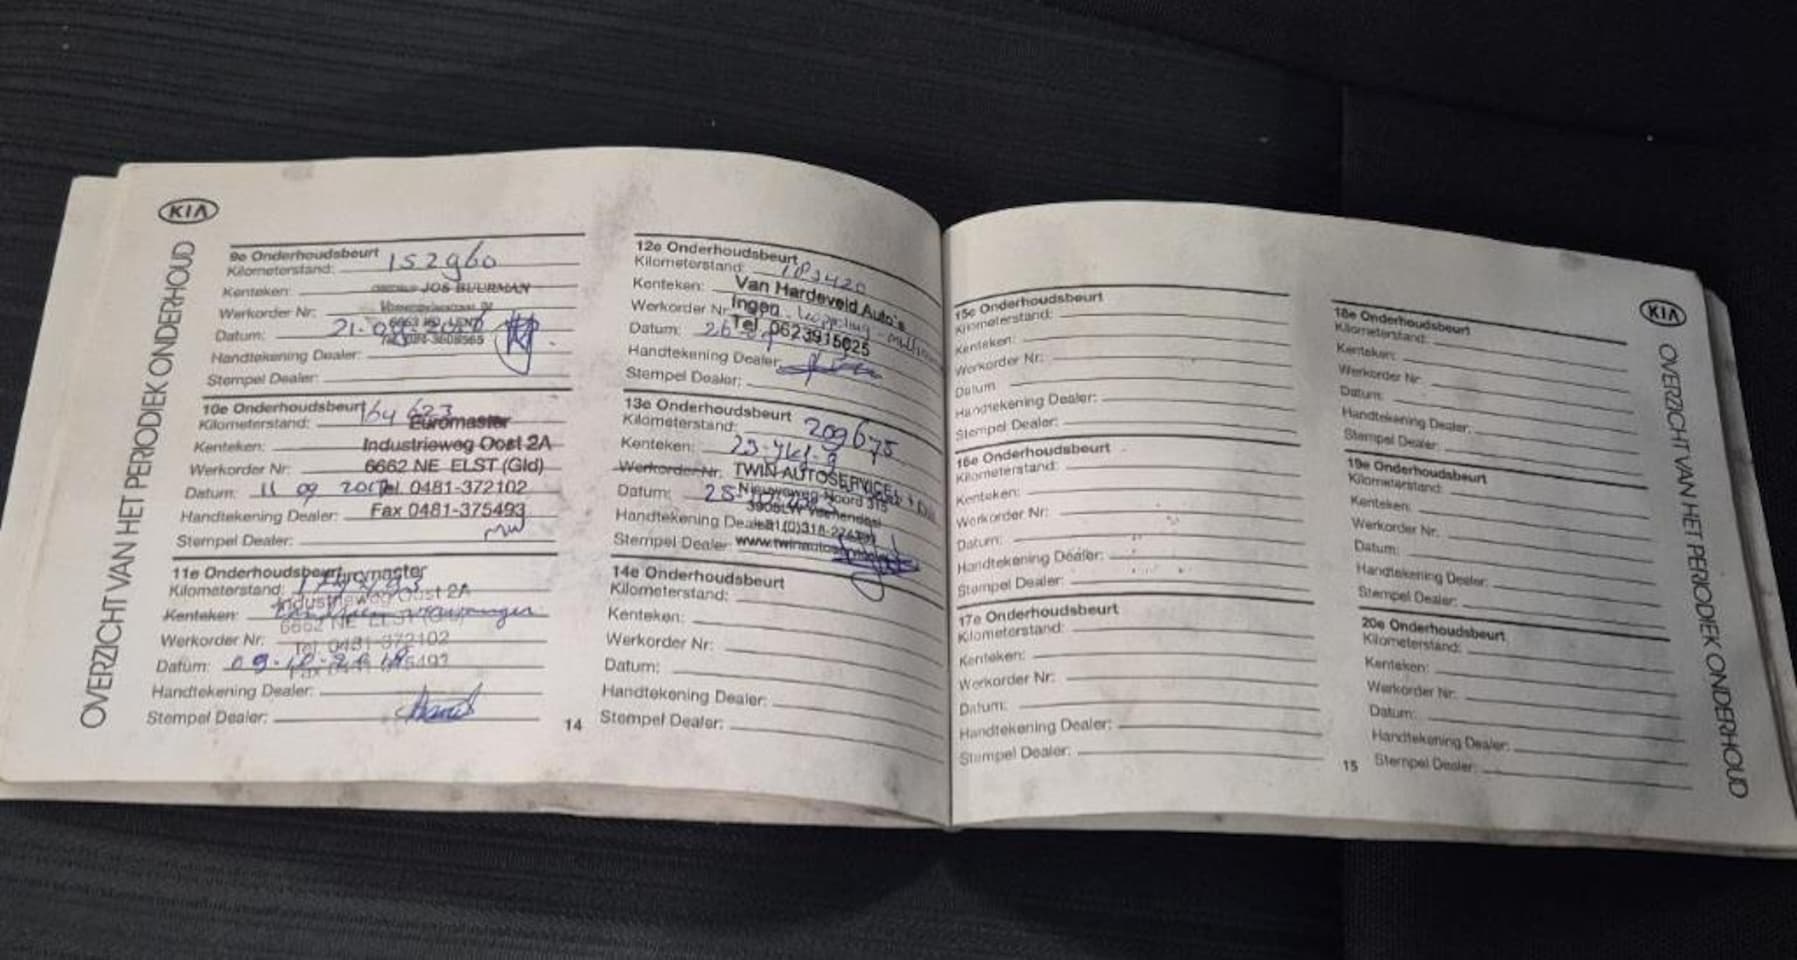 KIA
OVERZICHT VAN HET PERIODIEK ONDERHOUD
9e Onderhoudsbeurt
Kilometerstand: 152960
Kenteken: JOS BUURMAN
Werkorder Nr:
Datum: 21-
Handtekening Dealer:
Stempel Dealer:
10e Onderhoudsbeurt
Kilometerstand: 164 623
Euromaster
Kenteken: Industrieweg Oost 2A
Werkorder Nr: 6662 NE ELST (Gld)
Datum: 11 09 Tel. 0481-372102
Handtekening Dealer: Fax 0481-375493
Stempel Dealer:
11e Onderhoudsbeurt Euromaster
Kilometerstand:
Industrieweg Oost 2A
Kenteken:
6662 NE ELST (Gld)
Werkorder Nr: Tel. 0481-372102
Datum: 09-10-
Handtekening Dealer:
Stempel Dealer:
14
12e Onderhoudsbeurt
Kilometerstand:
Kenteken: Van Hardeveld Auto's
Werkorder Nr: Ingen
Datum: 26 Tel. 0623915025
Handtekening Dealer:
Stempel Dealer:
13e Onderhoudsbeurt
Kilometerstand: 209675
Kenteken:
Werkorder Nr. TWIN AUTOSERVICE
Datum: 25 Nieuweweg-Noord 315
Veenendaal
Handtekening Dealer:
Stempel Dealer:
14e Onderhoudsbeurt
Kilometerstand:
Kenteken:
Werkorder Nr:
Datum:
Handtekening Dealer:
Stempel Dealer:
15e Onderhoudsbeurt
Kilometerstand:
Kenteken:
Werkorder Nr:
Datum
Handtekening Dealer:
Stempel Dealer:
16e Onderhoudsbeurt
Kilometerstand:
Kenteken:
Werkorder Nr:
Datum:
Handtekening Dealer:
Stempel Dealer:
17e Onderhoudsbeurt
Kilometerstand:
Kenteken:
Werkorder Nr:
Datum:
Handtekening Dealer:
Stempel Dealer:
15
18e Onderhoudsbeurt
Kilometerstand:
Kenteken:
Werkorder Nr.
Datum:
Handtekening Dealer:
Stempel Dealer:
19e Onderhoudsbeurt
Kilometerstand:
Kenteken:
Werkorder Nr.
Datum:
Handtekening Dealer:
Stempel Dealer:
20e Onderhoudsbeurt
Kilometerstand:
Kenteken:
Werkorder Nr:
Datum:
Handtekening Dealer:
Stempel Dealer:
KIA
OVERZICHT VAN HET PERIODIEK ONDERHOUD